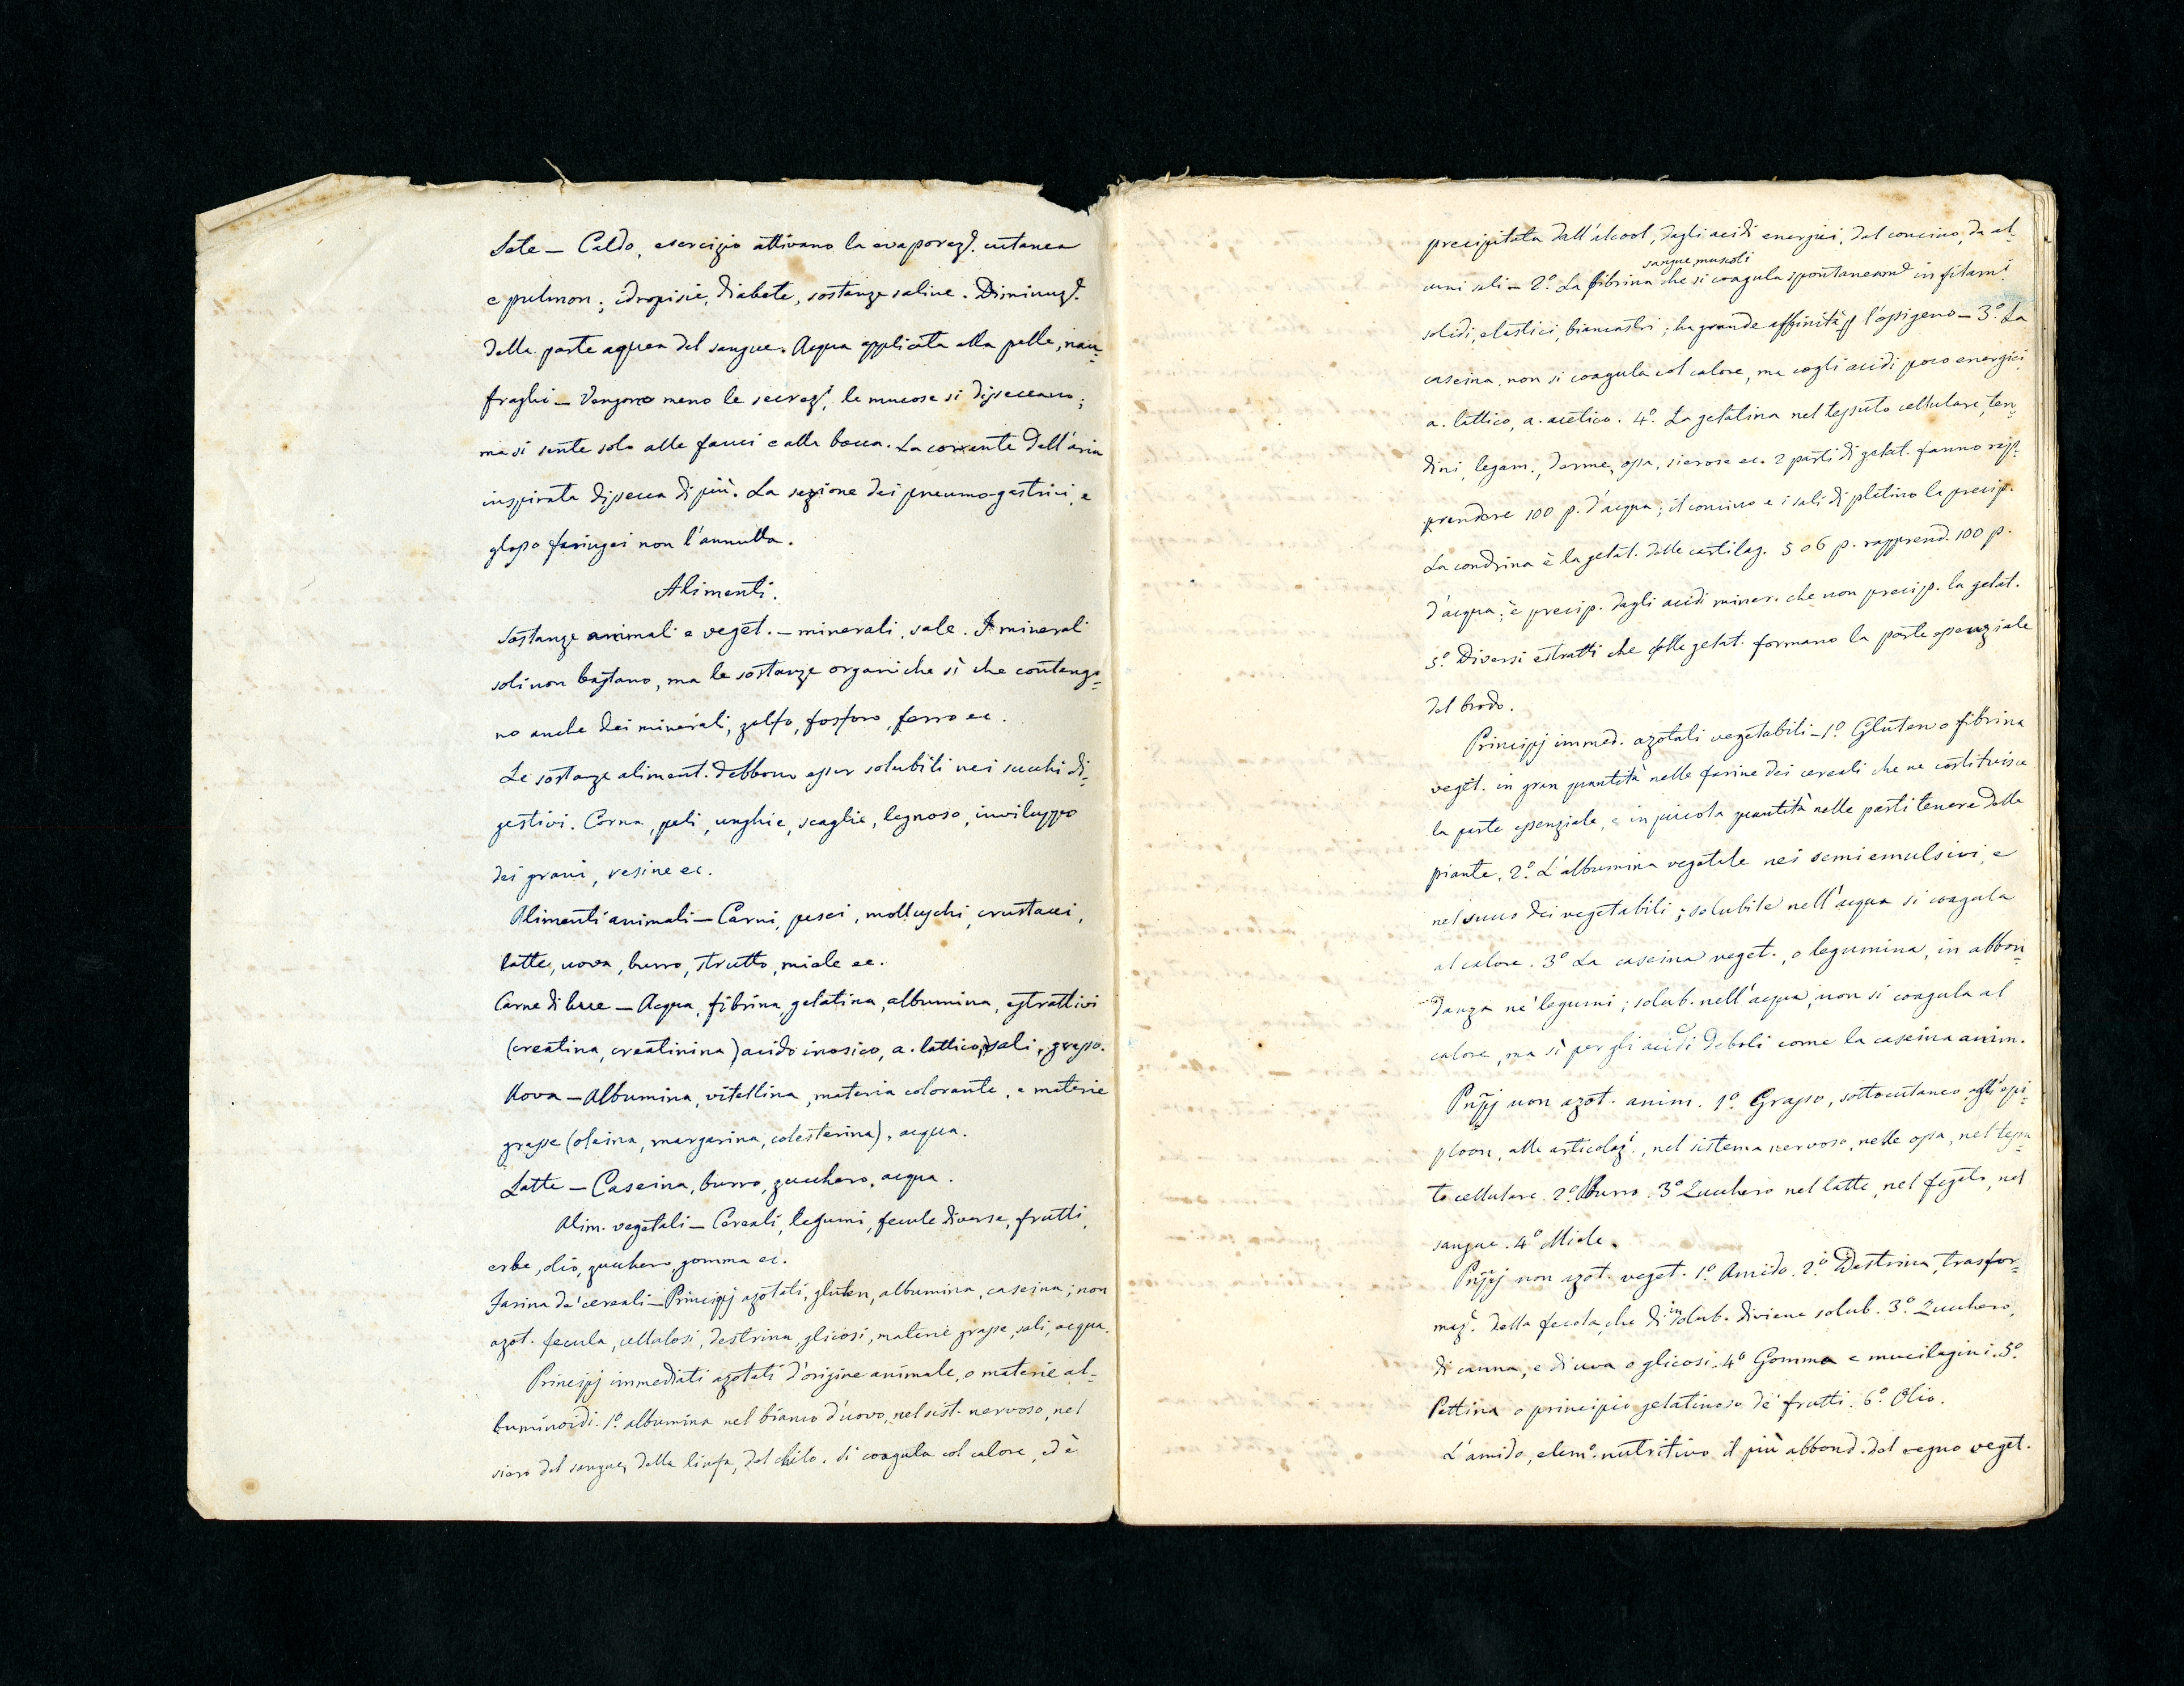 Sete — Caldo, esercizio attivano la evaporazᵉ. cutanea
e pulmon.; idropisie, diabete, sostanze saline. Diminuzᵉ.
della parte aquea del sangue. Acqua applicata alla pelle, nau=
fraghi — Vengono meno le secrezⁱ, le mucose si disseccano;
ma si sente solo alle fauci e alla bocca. La corrente dell'aria
inspirata dissecca di più. La sezione dei pneumo-gastrici, e
glosso faringei non l'annulla.
Alimenti.
Sostanze animali e veget. — minerali, sale. I minerali
soli non bastano, ma le sostanze organiche sì che contengo=
no anche dei minerali, zolfo, fosforo, ferro ec.
Le sostanze aliment. debbono esser solubili nei succhi di=
gestivi. Corna, peli, unghie, scaglie, legnoso, inviluppo
dei grani, resine ec.
Alimenti animali — Carni, pesci, molluschi, crustacei,
latte, uova, burro, strutto, miele ec.
Carne di bue — Acqua, fibrina, gelatina, albumina, estrattivi
(creatina, creatinina) acido inosico, a. lattico, sali, grasso.
Uova — Albumina, vitellina, materia colorante, e materie
grasse (oleina, margarina, colesterina), acqua.
Latte — Caseina, burro, zucchero, acqua.
Alim. vegetali — Cereali, legumi, fecule diverse, frutti,
erbe, olio, zucchero, gomma ec.
Farina de' cereali — Principj azotati, gluten, albumina, caseina; non
azot. fecula, cellulosi, destrina, glicosi, materie grasse, sali, acqua.
Principj immediati azotati d'origine animale, o materie al=
buminoidi. 1º. albumina nel bianco d'uovo, nel sist. nervoso, nel
siero del sangue, della linfa, del chilo. Si coagula col calore, ed è
precipitata dall'alcool, dagli acidi energici, dal concino, da al=
sangue, muscoli
cuni sali — 2º. La fibrina che si coagula spontaneamᵉ in filami
solidi, elastici, biancastri; ha grande affinità p l'ossigeno — 3º. La
caseina, non si coagula col calore, ma cogli acidi poco energici,
a. lattico, a. acetico. 4º. La gelatina nel tessuto cellulare, ten=
dini, legam., derme, ossa, sierose ec. 2 parti di gelat. fanno rap=
prendere 100 p. d'acqua; il concino e i sali di platino la precip.
La condrina è la gelat. delle cartilag. 5 o 6 p. rapprend. 100 p.
d'acqua; è precip. dagli acidi miner. che non precip. la gelat.
5º. Diversi estratti che colla gelat. formano la parte essenziale
del brodo.
Principj immed. azotati vegetabili — 1º Gluten o fibrina
veget. in gran quantità nelle farine dei cereali che ne costituisce
la parte essenziale, e in piccola quantità nelle parti tenere delle
piante. 2º. L'albumina vegetale nei semi emulsivi, e
nel succo dei vegetabili; solubile nell'acqua si coagula
al calore. 3º La caseina veget., o legumina, in abbon=
danza ne' legumi; solub. nell'acqua, non si coagula al
calore, ma sì per gli acidi deboli come la caseina anim.
Pñpj non azot. anim. 1º. Grasso, sottocutaneo, agli epi=
ploon, alle articolazⁱ., nel sistema nervoso, nelle ossa, nel tessu=
to cellulare. 2º. Burro. 3º Zucchero nel latte, nel fegato, nel
sangue. 4º Miele.
Pñpj non azot. veget. 1º. Amido. 2º. Destrina, trasfor=
in
mazᵉ. della fecola, che di solub. diviene solub. 3º. Zucchero,
di canna, e di uva o glicosi. 4º Gomma e mucilagini. 5º.
Pettina o principio gelatinoso de' frutti. 6º. Olio.
L'amido, elemº. nutritivo il più abbond. del regno veget.